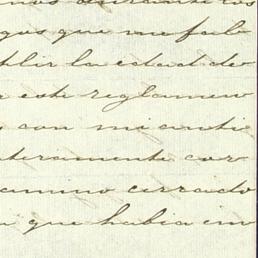 durante los
que me fal
plir la edad de
este reglamen
con mi anti
teramente cor
camino cerrado
que habia em